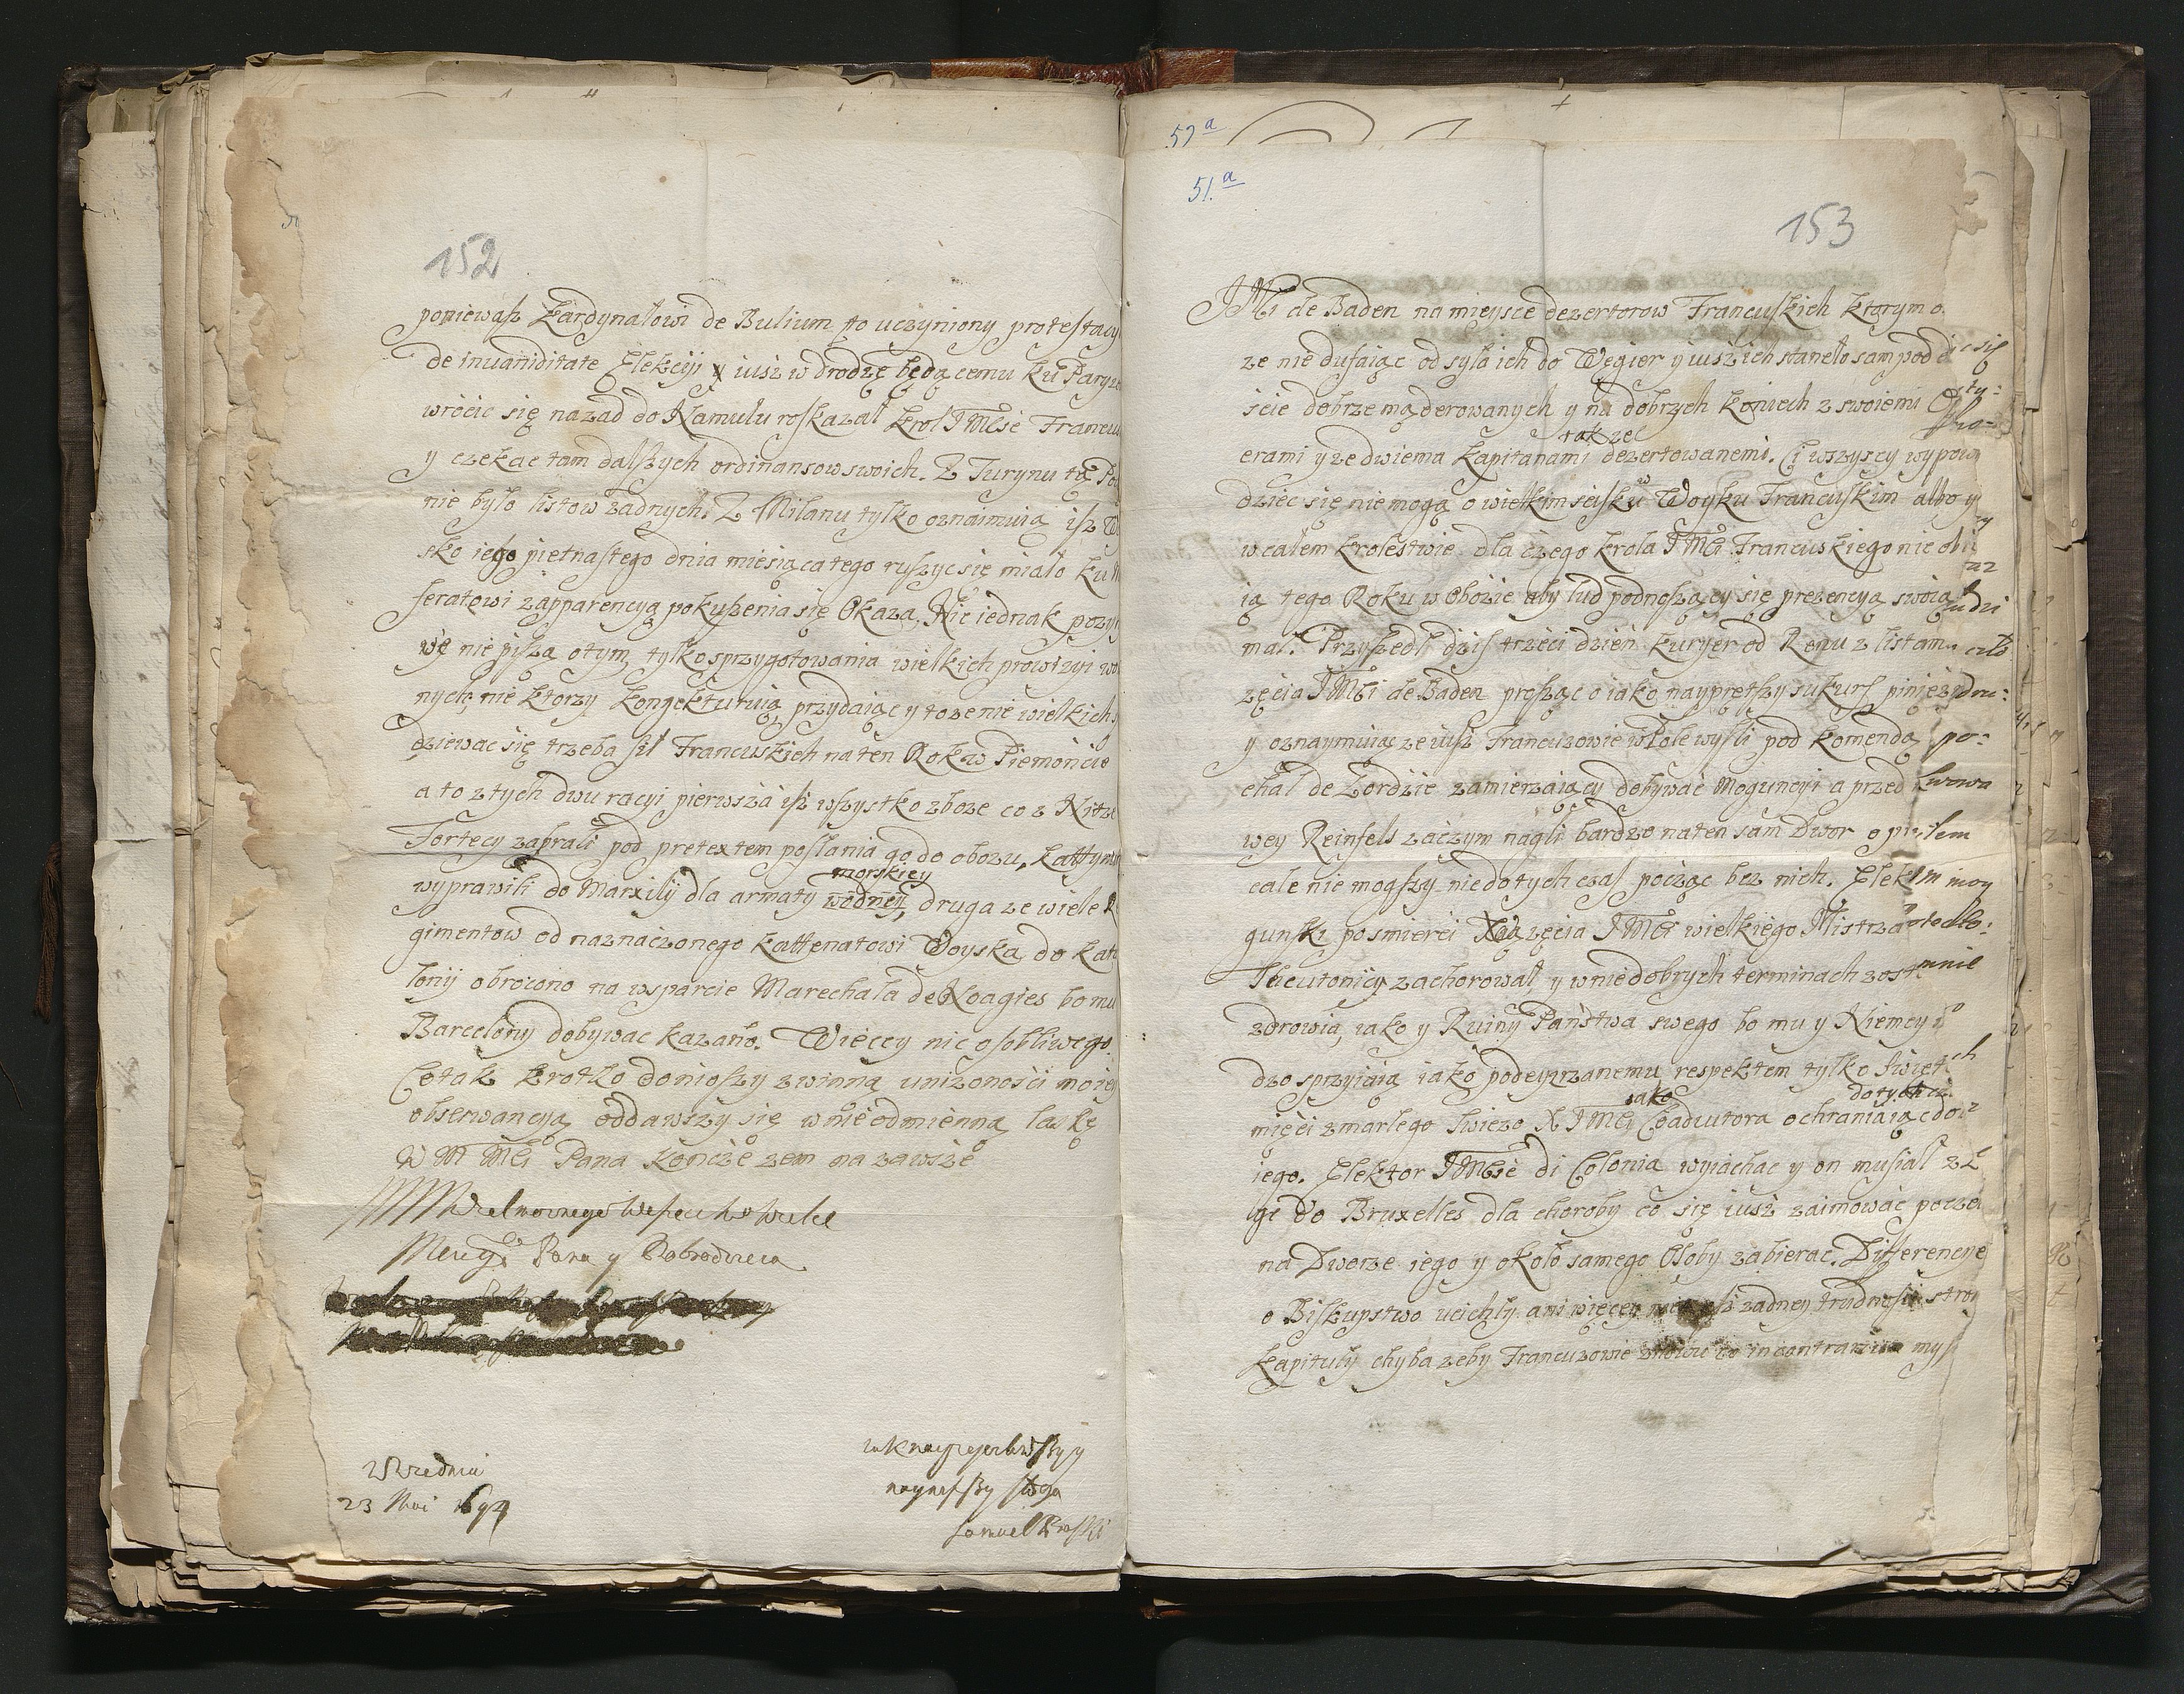 152
poniewasz Kardynałowi de Bulium po uczyniony protestacy
de invaniditate Elekcyi y iusz w drodzę będącemu ku Paryz
wrócic się nazad do Namulu roskazał Krol JMsć Francu
y czekac tam dalszych ordinansow swoich. Z Turynu tą Po
nie było listow zadnych. Z Milanu tylko oznaimuią isz W
sko iego pietnastego dnia miesiąca tego ruszyc się miało ku
feratowi z apparencyą pokuszenia się Okaza. Nic iednak pozy
wę nie piszą o tym, tylko s przygotowania wielkich prowizyi wo
nych, nie ktorzy kongekturuią, przydaiąc y to ze nie wielkich
dziewac się trzeba sił Francuskich na ten Rok w Piemoncie
a to z tych dwu racyi, pierwsza isz wszystko zboze co z Nitze
Fortecy zabrali pod pretextem posłania go do obozu, Kattyn
morskiey
wyprawili do Marxilij dla armaty wodney, druga ze wiele R
gimentow od naznaczonego Kattenatowi Woyska, do Kata
lonij obrocono na wsparcie Marechala de Noagies bo mu
Barcelony dobywac kazano. Więcey nic osobliwego.
Co tak krotko doniozszy z winną unizonosci moiey
obserwancyą oddawszy się w nieodmienną laskę
W M Mći Pana kończe zem na zawsze
Wielmoznego
Mcgo Pana y Dobrodzieia
z Wiednia
23 Mai 1694
naynizszy sługa
Samuel
59 a
51. a
153
JMći de Baden na mieysce dezertorow Francuskich ktorym o
ze nie dufaiąc odsyła ich do Węgier y iusz ich staneło sam pod
scie dobrze mąderowanych y na dobrych koniech z swoiemi
takze
erami y ze dwiema Kapitanami dezertowanemi. Ci wszyscy wypow
dziec się nie mogą o wielkim scisku w Woysku Francuskim albo y
w całem krolestwie dla czego krola JMći Francuskiego nie obi
ią tego Roku w Obozie aby lud podnoszący się prezencyą swoią
mał. Przyszedł dzis trzeci dzien kuryer od Renu z listam
zęcia JMći de Baden prosząc o iako nayprętszy sukurs pinięz
y oznaymuiąc ze iusz Francuzowie w Pole wyszli pod komendą
chal de Lordzie zamierzaiący dobywać Moguncyi a przed
wey Reinfels zaczym nagli bardzo na ten sam Dwor o
cale nie mogszy nie dotych czas począc bez nich. Elek
gunski po smierci Xiązęcia JMći wielkiego Mistrza
Theutonicy zachorował, y w niedobrych terminach zost
zdrowia, iako y Ruiny Państwa swego bo mu y Niemcy
dzo sprzyiaią iako podeyzrzanemu respektem tylko swięt
iako dotych cz
mięci zmarłego swiezo X JMći Coadiutora ochraniaiąc do
iego. Elektor JMść di Colonia wyiachac y on musiał z L
gi do Bruxelles dla choroby co się iusz zaimować pocze
na Dworze iego y około samego Osoby zabierac. Differencye
o Biskupstwo ucichły ani więcey zadney trudnosci stron
Kapituły chyba zeby Francuzowie znowu co in contrarium mys